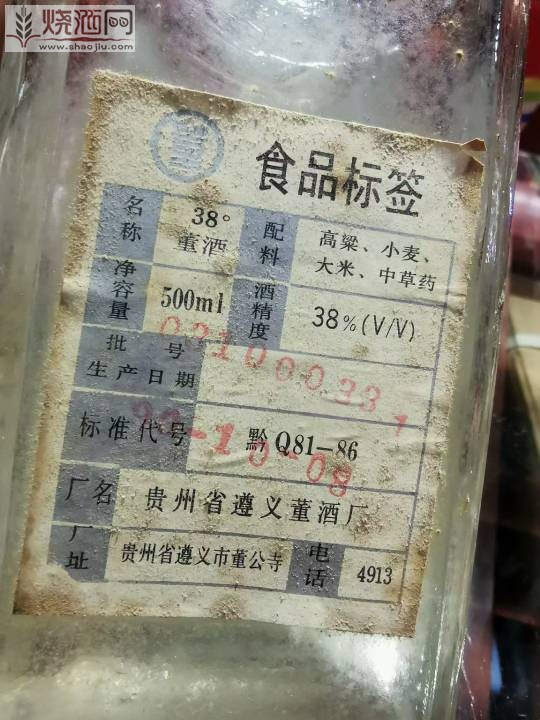 烧酒网
www.shaojiu.com
董
食品标签
名称 38° 董酒 配料 高粱、小麦、大米、中草药
净容量 500ml 酒精度 38%(V/V)
批号
生产日期
标准代号 黔Q81-86
厂名 贵州省遵义董酒厂
厂址 贵州省遵义市董公寺 电话 4913